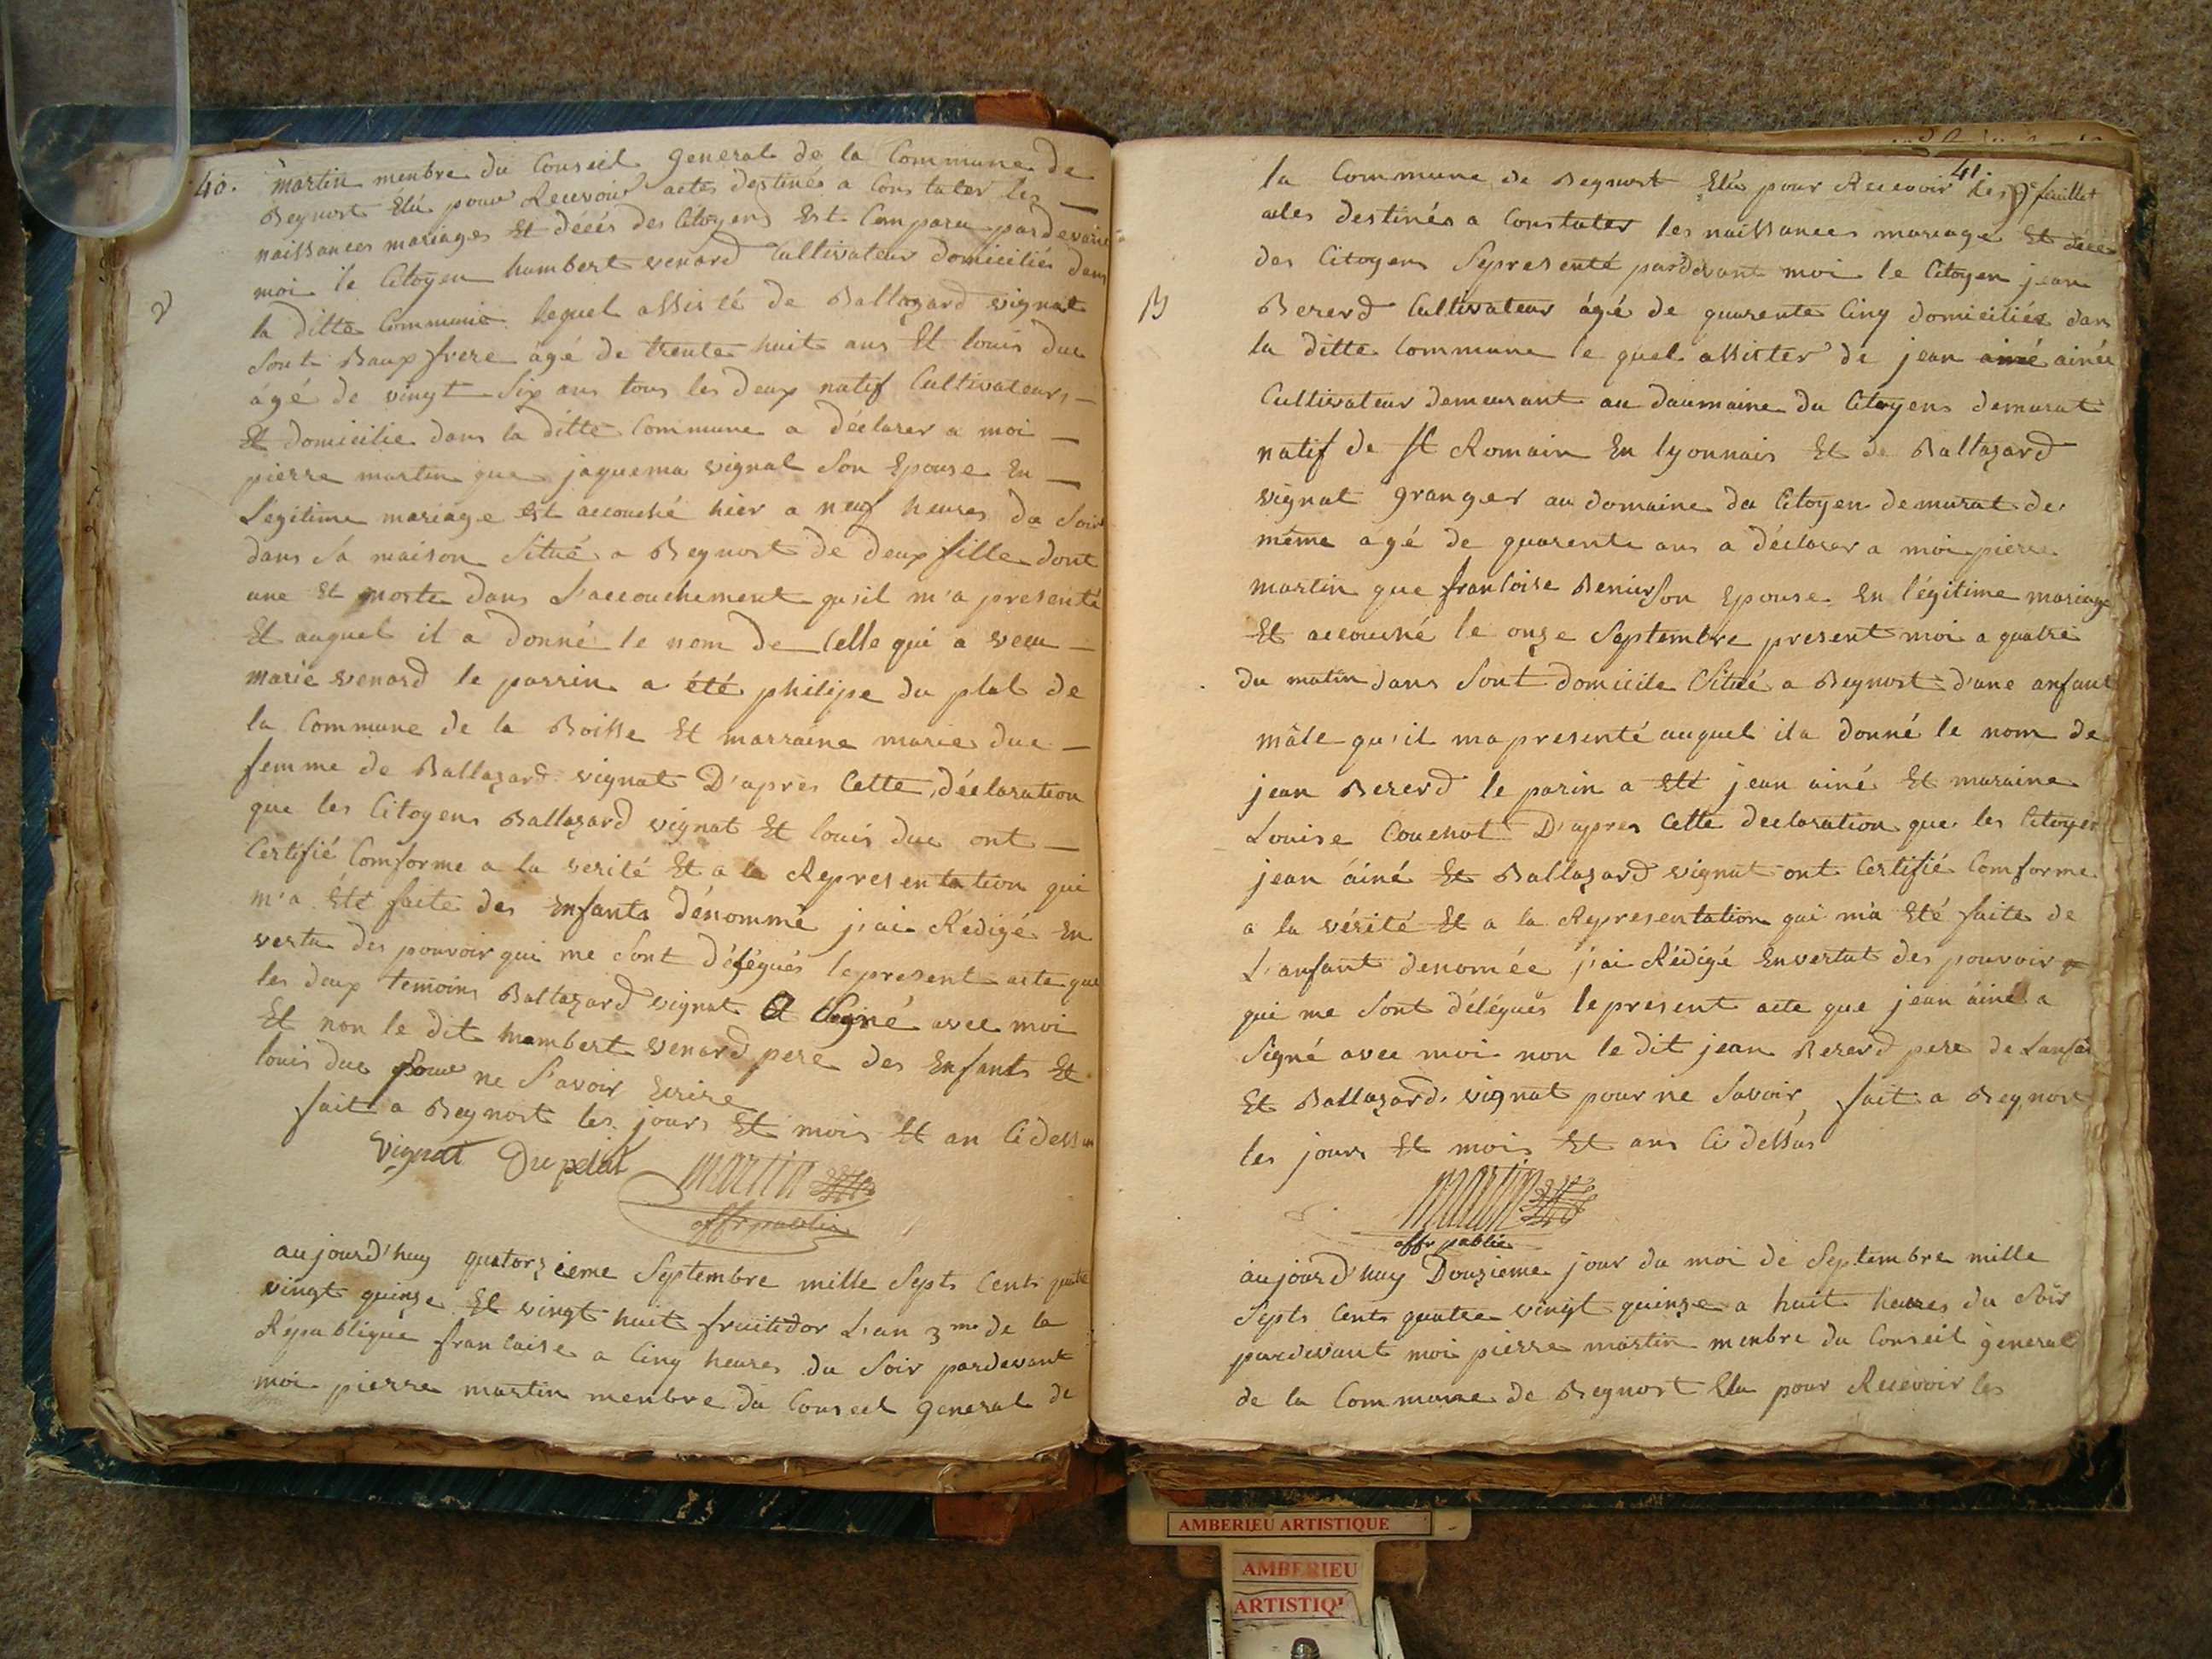 40. martin menbre du Conseil general de la Commune de
Beynost Élû pour Recevoir actes destinés a Constater les
naissances mariages Et décés des Citoyens Est Comparu pardevant
moi le Citoyen humbert venard Cultivateur domiciliés dans
la ditte Commune lequel assisté de Baltazard vignat
Sont Baux frere agé de trente huit ans Et louis duc
âgé de vingt Six ans tous les deux natif Cultivateurs
Et domicilie dans la ditte Commune a déclarer a moi
pierre martin que jaquema vignat Son Epouse En
Légitime mariage Est accouché hier a neuf heures du Soir
dans Sa maison Situé a Beynost de deux fille dont
une Et morte dans L'accouchement qu'il m'a presenté
Et auquel il a donné le nom de Celle qui a vecu
marie venard le parrin a été philipe du plat de
la Commune de la Boisse Et marraine marie duc
femme de Baltazard vignat D'aprés Cette déclaration
que les Citoyens Baltazard vignat Et louis duc ont
Certifié Comforme a la verité Et a la Representation qui
m'a Été faite des Enfants dénommé j'ai Rédigé En
vertu des pouvoir qui me Sont délégués le present acte que
les deux temoins Baltazard vignat A Signé avec moi
Et non le dit humbert venard pere des Enfants Et
louis duc pour ne Savoir Ecrire
fait a Beynost les jours Et mois Et an Ci dessus
vignat Duplat martin
offr public
aujourd'huy quatorzieme Septembre mille Septs Cents quatre
vingt quinze Et vingt huit fruitidor L'an 3me de la
République francaise a Cinq heures du Soir pardevant
moi pierre martin menbre du Conseil general de
41. 9e feuillet
la Commune de Beynost Elû pour Recevoir les
actes destinés a Constater les naissances mariage Et décé
des Citoyens Sepresenté pardevant moi le Citoyen jean
Bererd Cultivateur âgé de quarente Cinq domiciliéz dans
la ditte Commune le quel assister de jean ainé ainée
Cultivateur demeurant au daumaine du Citoyens demurat
natif de St Romain En lyonnais Et de Baltazard
vignat granger au domaine du Citoyen demurat de
même agé de quarente ans a déclarer a moi pierre
martin que francoise Benier Son Epouse En légitime mariage
Et accouché le onze Septembre present moi a quatre
du matin dans Sont domicile Situé a Beynost d'une anfant
mâle qu'il ma presenté auquel il a donné le nom de
jean Bererd le parin a Eté jean ainé Et maraine
Louise Couchot D'apres Cette declaration que les Citoyen
jean áiné Et Baltazard vignat ont Certifié Comforme
a la vérité Et a la Representation qui m'a Eté faite de
L'anfant denomée j'ai Rédigé Envertut des pouvoir
qui me Sont délégués le present acte que jean áiné a
Signé avec moi non le dit jean Bererd pere de Lanfan
Et Baltazard vignat pour ne Savoir, fait a Beynost
les jours Et mois Et ans Ci dessus
martin
offr public
aujourd'huy Douzieme jour du moi de Septembre mille
Septs Cents quatre vingt quinze a huit heures du Soir
pardevant moi pierre martin menbre du Conseil general
de la Commune de Beynost Elu pour Recevoir les
AMBERIEU ARTISTIQUE
AMBERIEU
ARTISTIQU